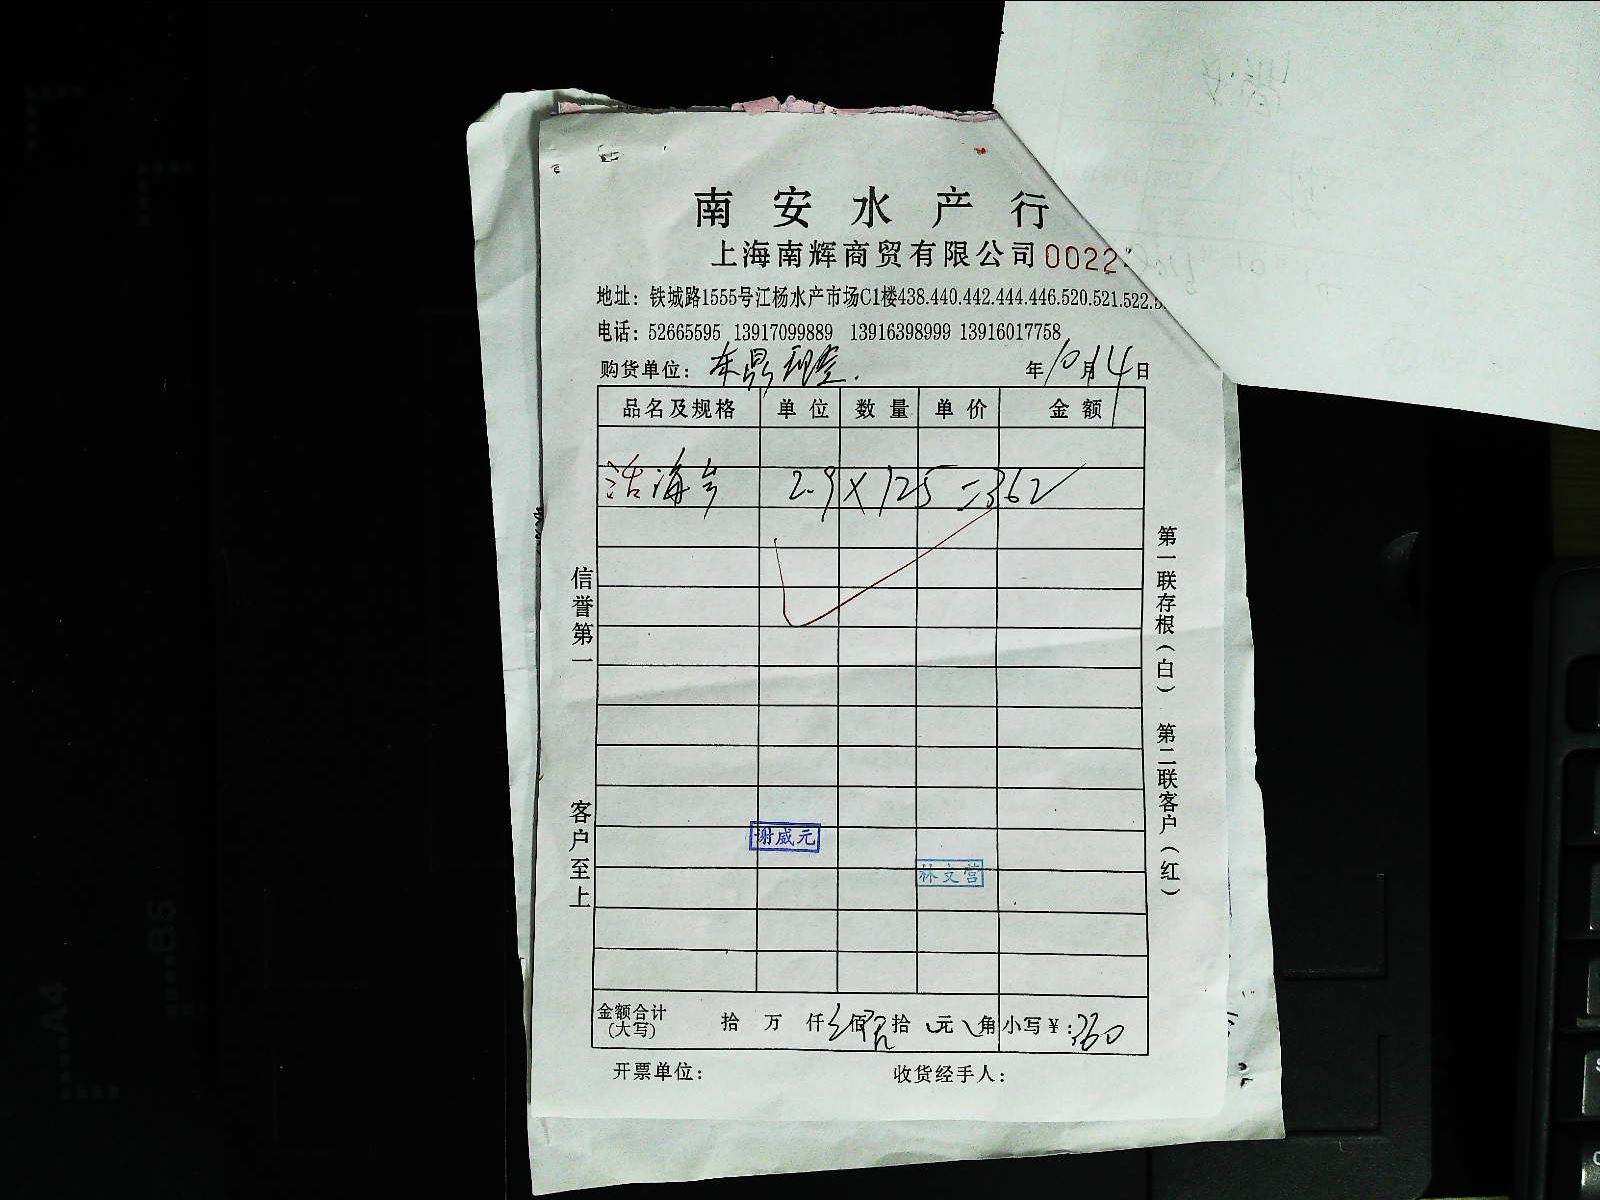 南安水产行
上海南辉商贸有限公司 0022
地址：铁城路1555号江杨水产市场C1楼438.440.442.444.446.520.521.522.5
电话：52665595 13917099889 13916398999 13916017758
购货单位： 年10月14日
品名及规格 单位 数量 单价 金额
活海 2.9×125=362
信誉第一
客户至上
第一联存根（白） 第二联客户（红）
谢威元
林文营
金额合计（大写） 拾 万 仟 佰 拾 元 角 小写￥：360
开票单位： 收货经手人：